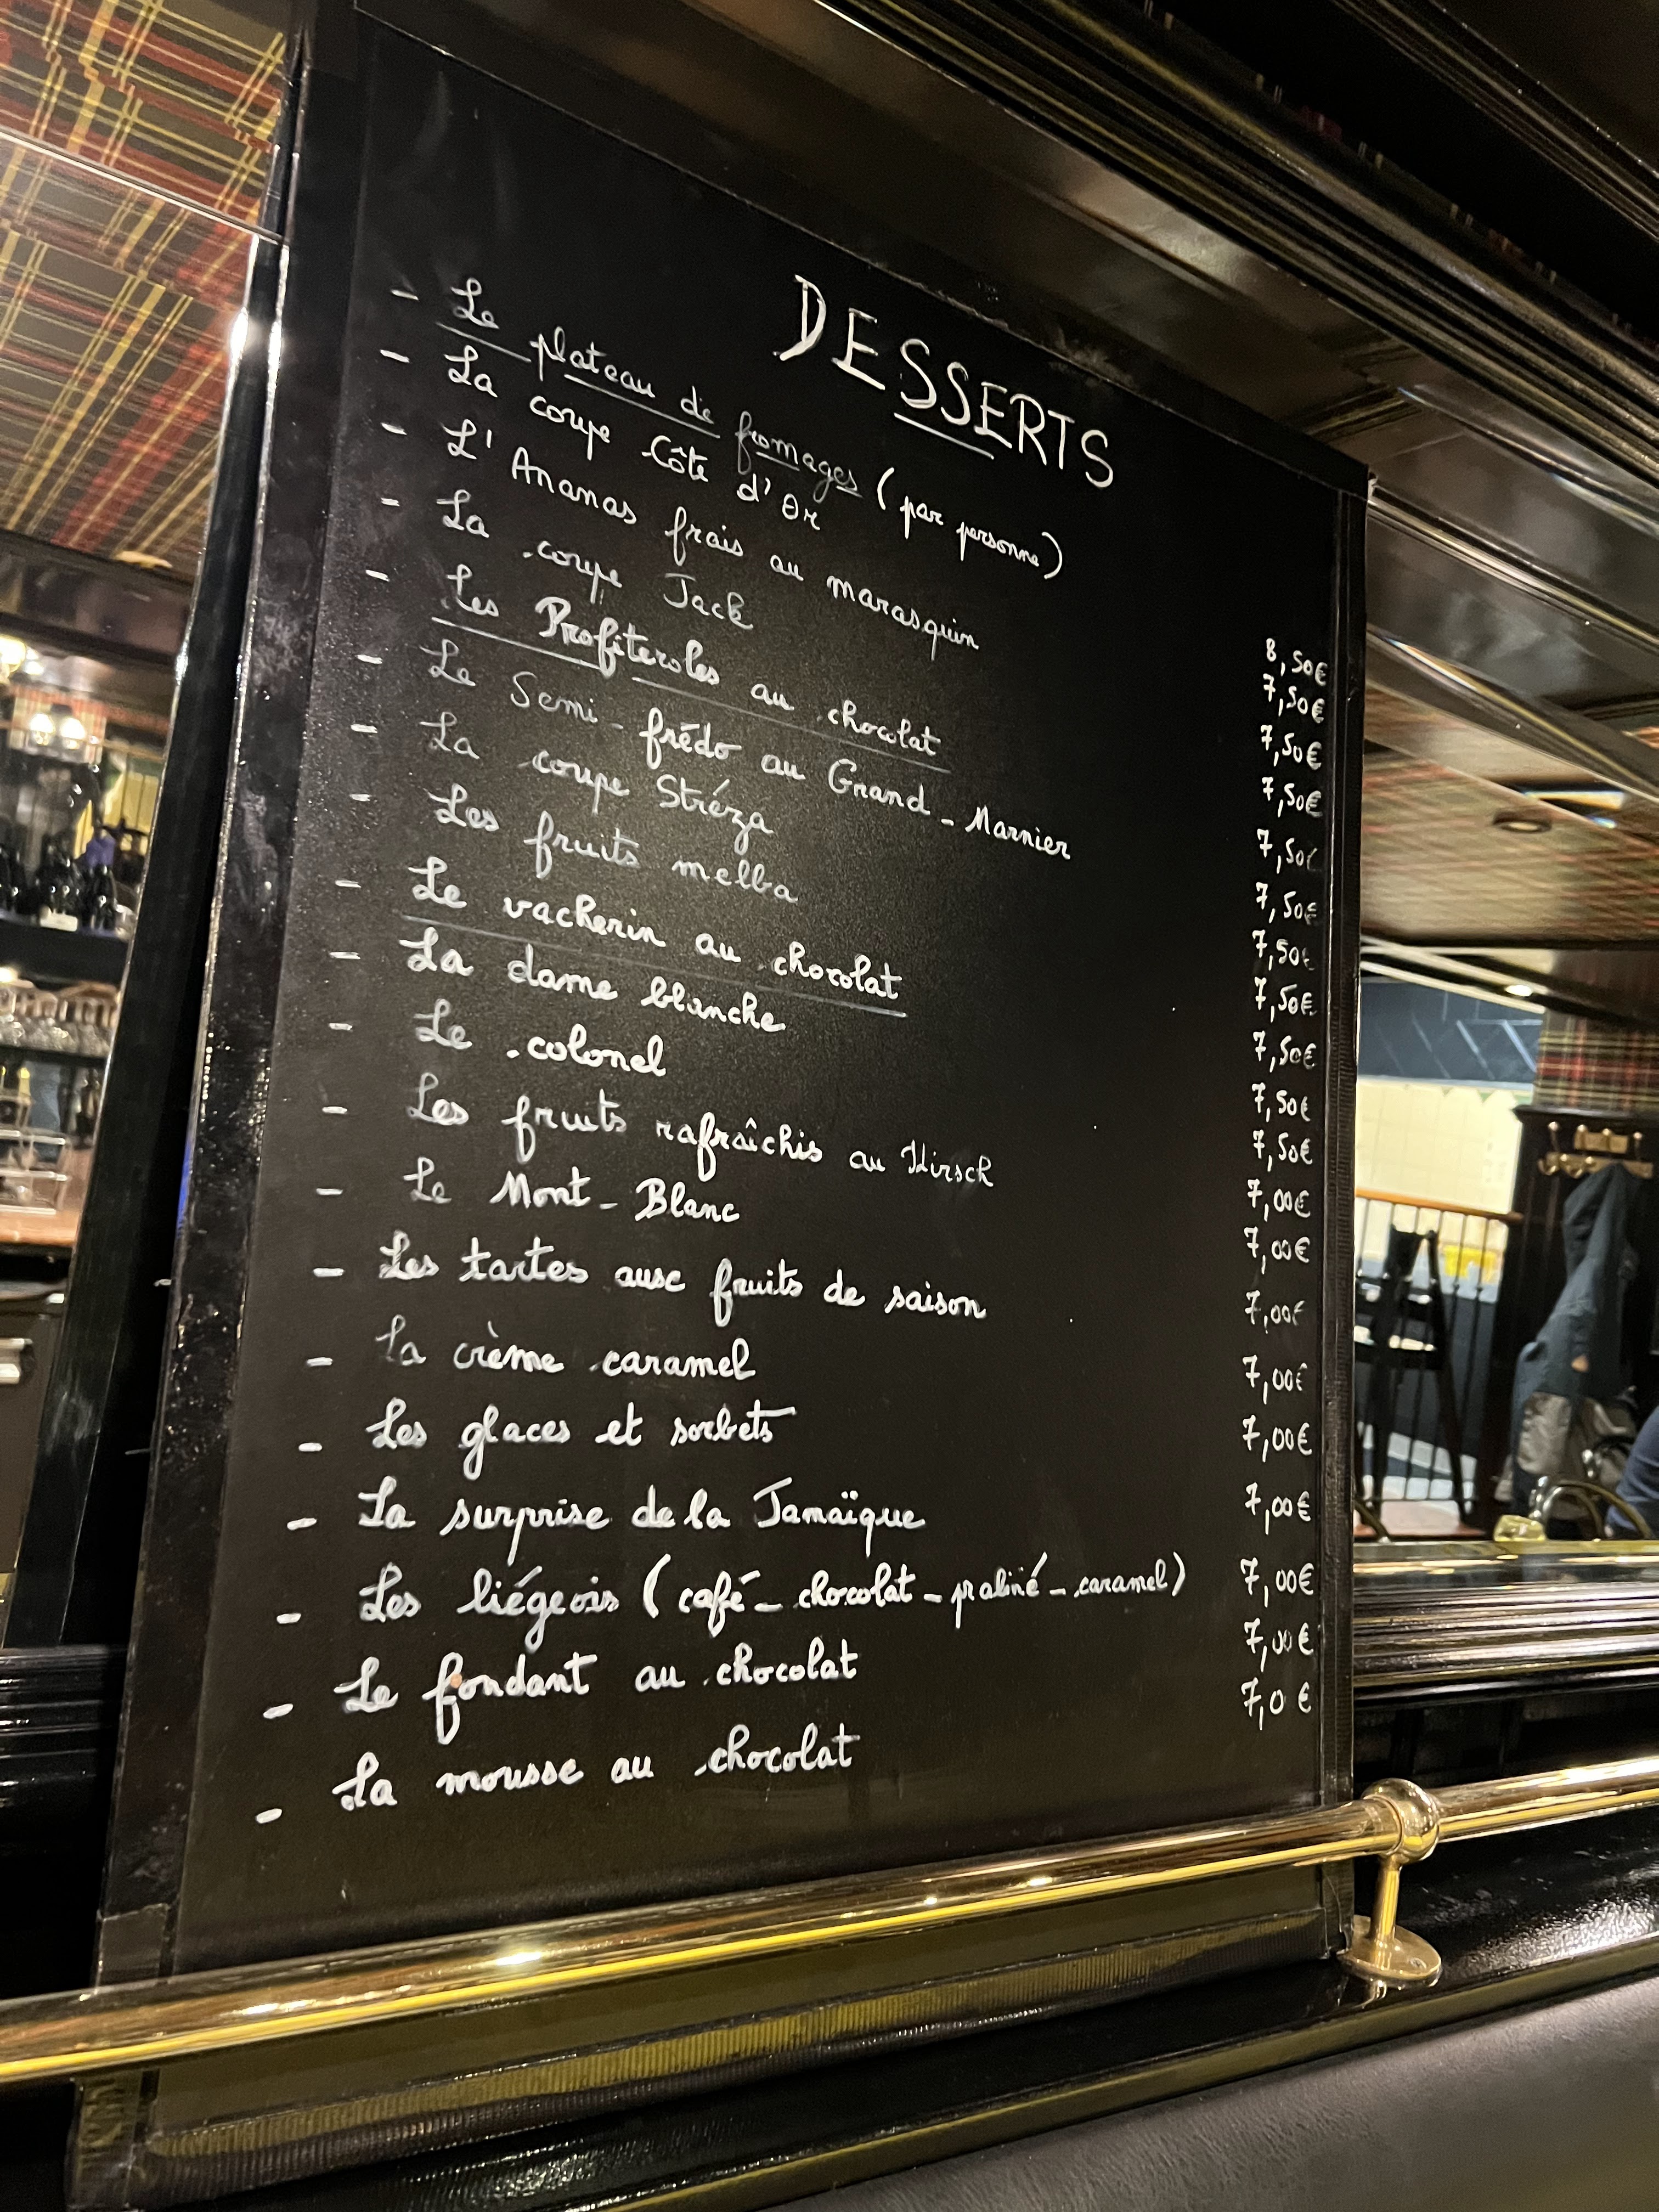 DESSERTS
- Le plateau de fromages (par personne) 8,50€
- La coupe Côte d'Or 7,50€
- L'Ananas frais au marasquin 7,50€
- La coupe Jack 7,50€
- Les Profiteroles au chocolat 7,50€
- Le Semi-frédo au Grand-Marnier 7,50€
- La coupe Stréza 7,50€
- Les fruits melba 7,50€
- Le vacherin au chocolat 7,50€
- La dame blanche 7,50€
- Le colonel 7,50€
- Les fruits rafraîchis au Kirsch 7,00€
- Le Mont-Blanc 7,00€
- Les tartes aux fruits de saison 7,00€
- La crème caramel 7,00€
- Les glaces et sorbets 7,00€
- La surprise de la Jamaïque 7,00€
- Les liégeois (café - chocolat - praliné - caramel) 7,00€
- Le fondant au chocolat 7,00€
- La mousse au chocolat 7,0 €